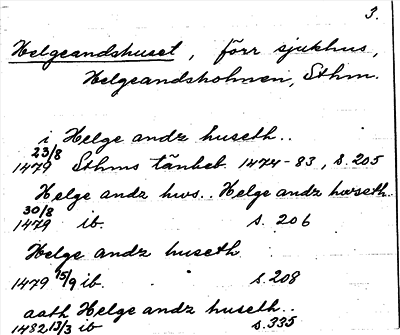 3.
Helgeandshuset, förr sjukhus,
Helgeandsholmen, Sthm.
i Helge andz huseth..
23/8
1479 Sthms tänkeb 1474-83, s. 205
Helge andz hws.. Helge andz hwseth.
30/8
1479 ib. s. 206
Helge andz huseth
1479 15/9 ib. s. 208
aath Helge andz huseth..
1482 13/3 ib s. 335